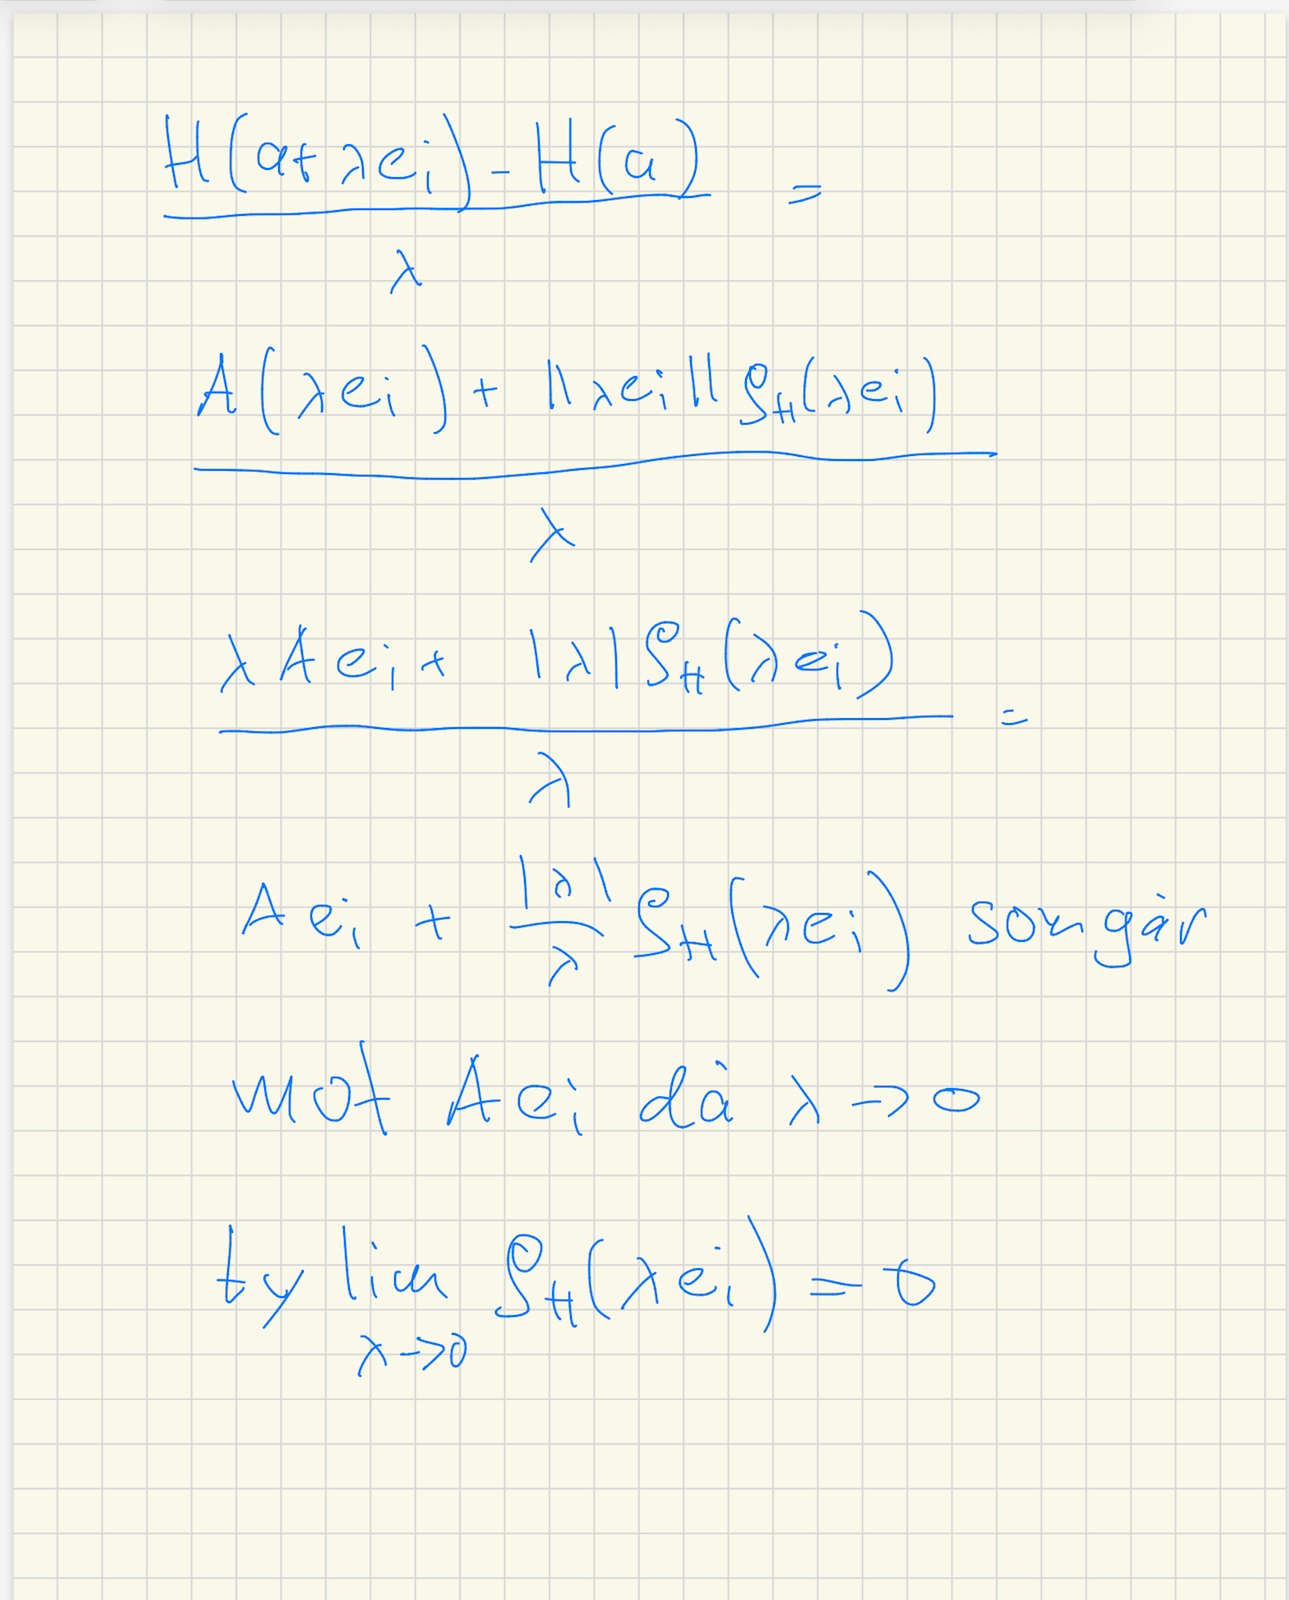 H(a+λe_i) - H(a) =
λ
A(λe_i) + ||λe_i|| ρ_H(λe_i)
λ
λAe_i + |λ| ρ_H(λe_i) =
λ
Ae_i + |λ|/λ ρ_H(λe_i) som går
mot Ae_i då λ → 0
ty lim ρ_H(λe_i) = 0
λ → 0